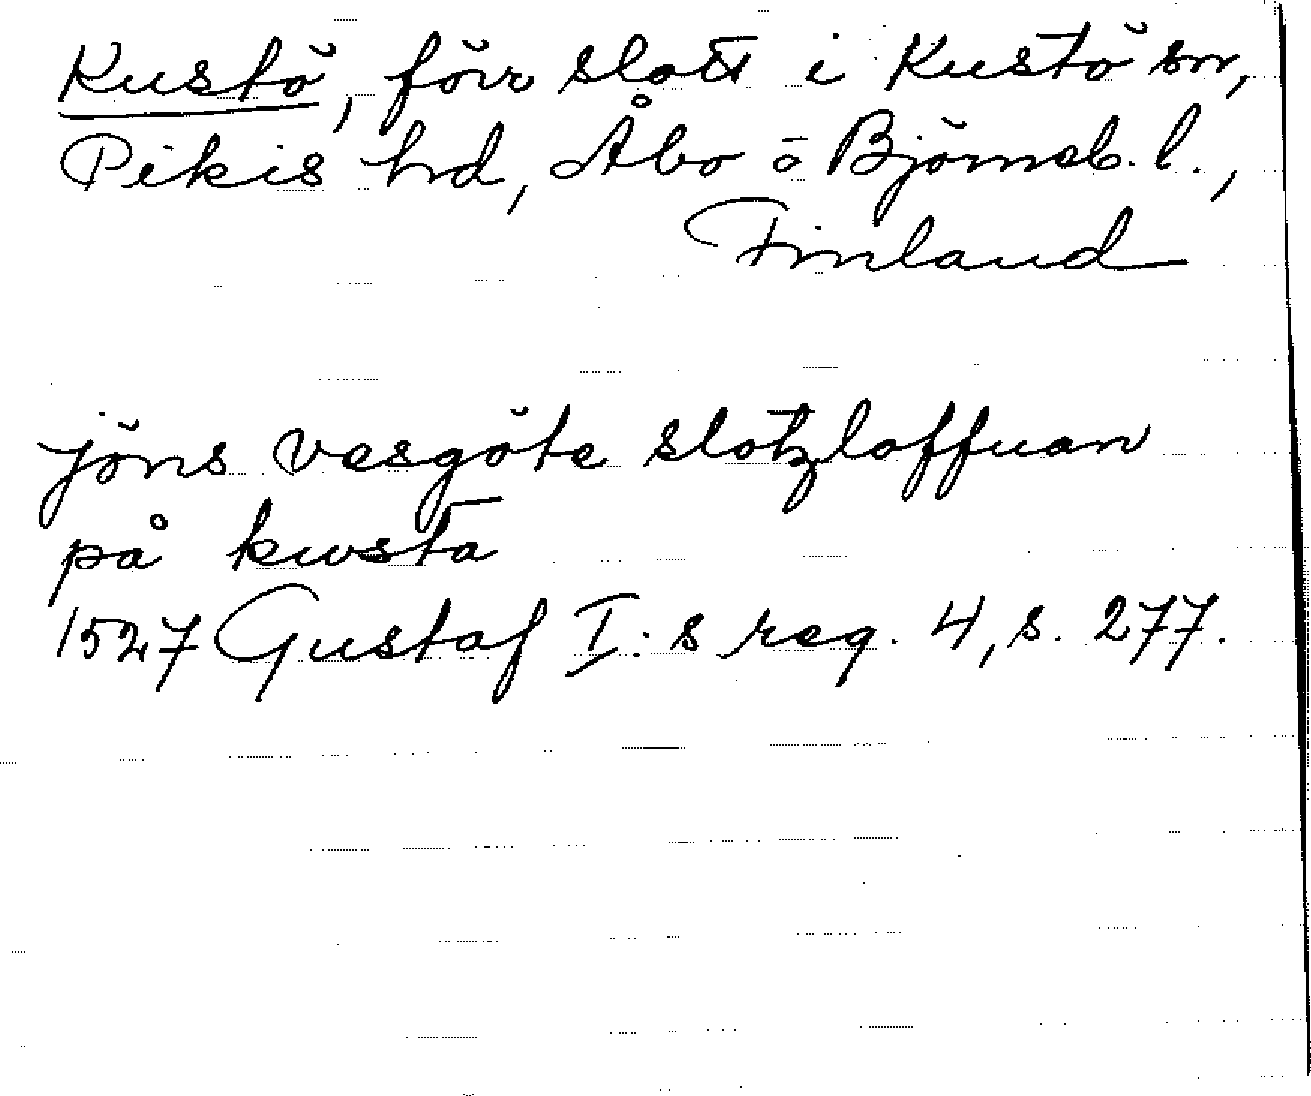 Kustö, förr slott i Kustö sn,
Pikis hd, Åbo o Björneb. l.,
Finland
jöns vesgöte slotzloffuan
på kwsta
1527 Gustaf I:s reg. 4, s. 277.